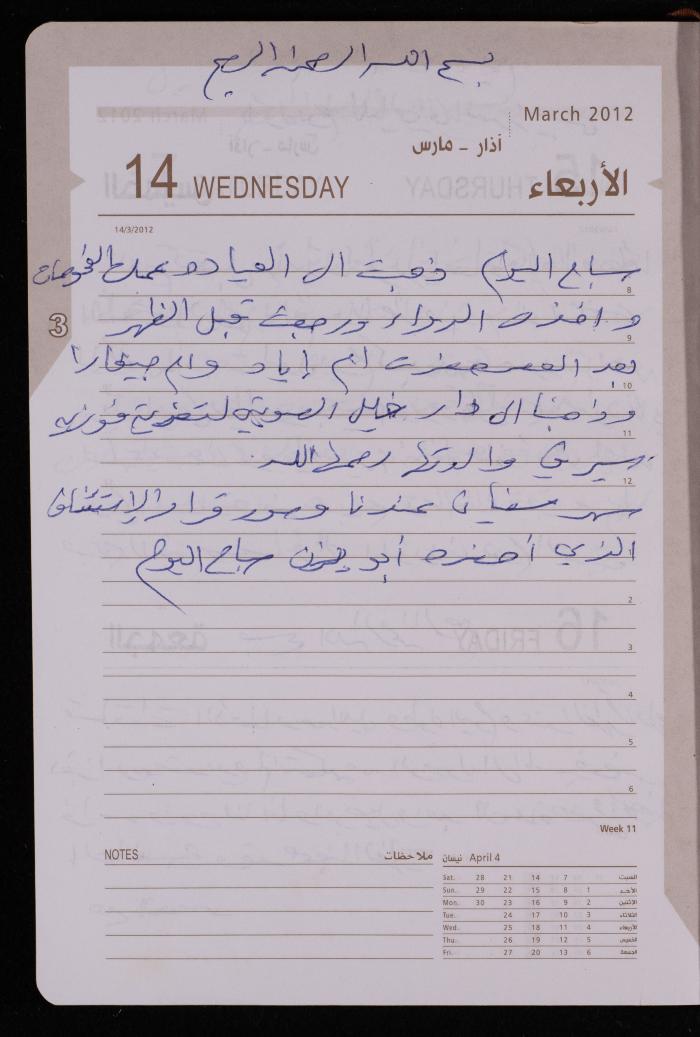 بسم الله الرحمن الرحيم
March 2012
آذار - مارس
14 WEDNESDAY الأربعاء
14/3/2012
صباح اليوم ذهبت الى العيادة وعملت الفحوصات
8
واخذت الدواء ورجعت قبل الظهر
9
3
بعد العصر حضرت ام إياد وام جيفارا
10
وذهبنا الى دار خليل لتعزية فوزيه
11
والدتها رحمها الله.
12
سهر سفيان عندنا وصور قرار الإستئناف
الذي أحضره أبو يزن صباح اليوم
2
3
4
5
6
Week 11
NOTES ملاحظات
نيسان April 4
Sat. 28 21 14 7 السبت
Sun. 29 22 15 8 1 الأحد
Mon. 30 23 16 9 2 الاثنين
Tue. 24 17 10 3 الثلاثاء
Wed. 25 18 11 4 الأربعاء
Thu. 26 19 12 5 الخميس
Fri. 27 20 13 6 الجمعة